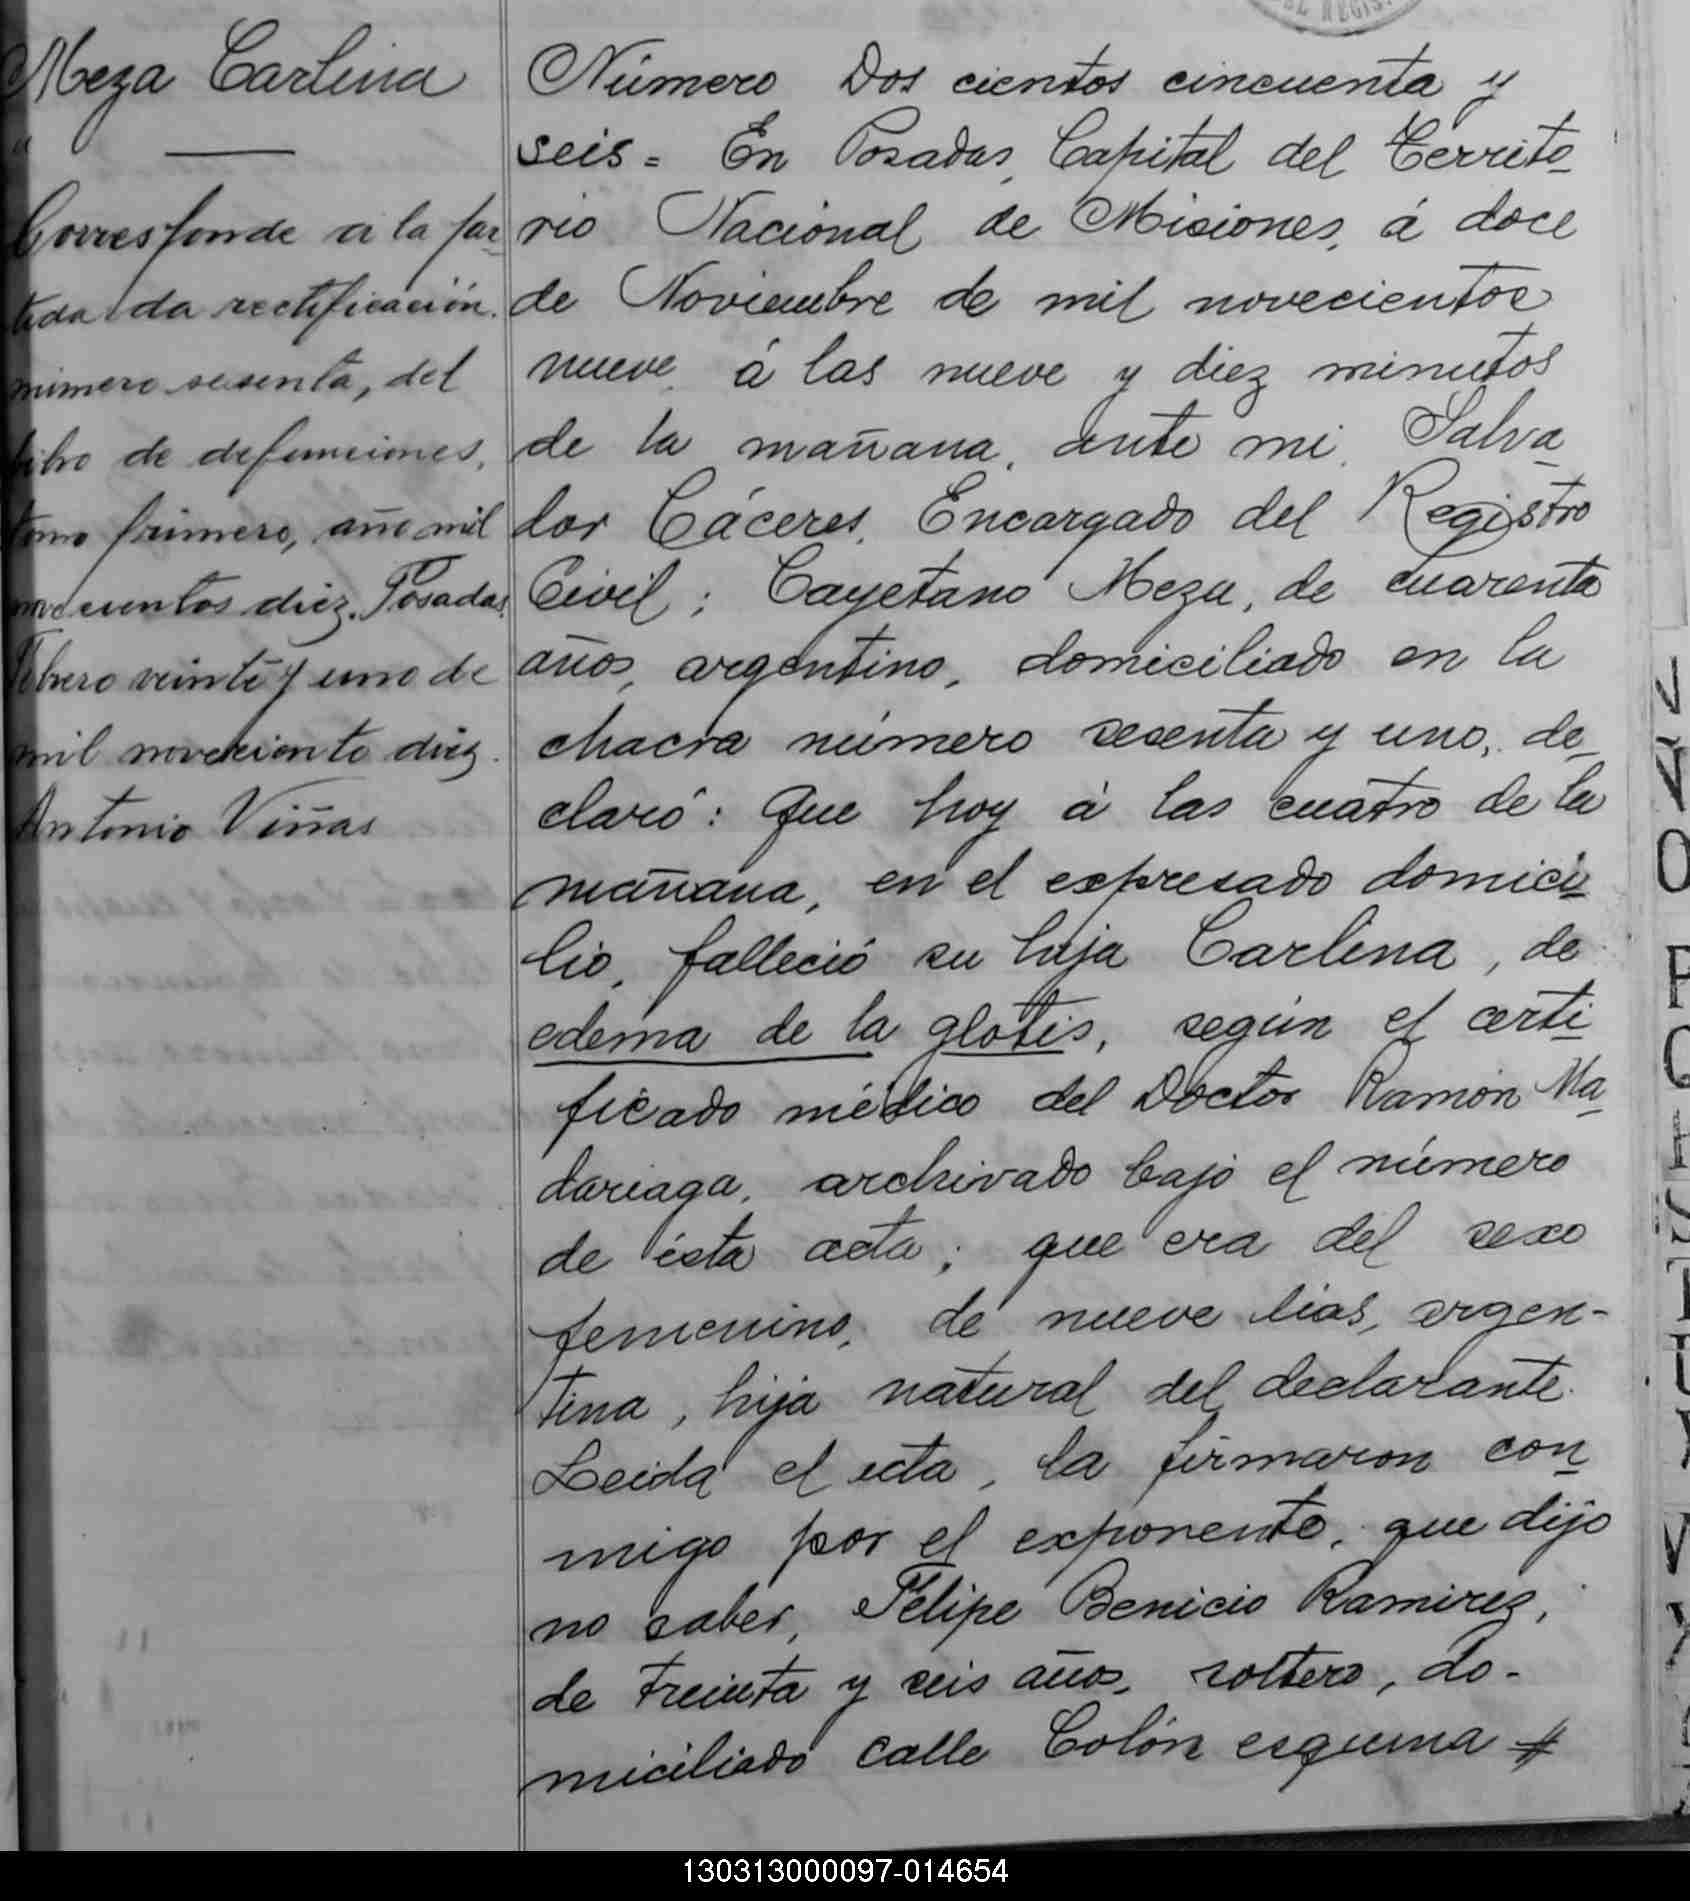 Meza Carlina
Corresponde a la par
tida da rectificación
número sesenta, del
libro de defunciones,
tomo primero, año mil
novecientos diez. Posadas
Febrero veinte y uno de
mil noveciento diez.
Antonio Viñas
Número Dos cientos cincuenta y
seis = En Posadas, Capital del Territo
rio Nacional de Misiones, á doce
de Noviembre de mil novecientos
nueve, á las nueve y diez minutos
de la mañana, ante mi, Salva
dor Cáceres, Encargado del Registro
Civil; Cayetano Meza, de cuarenta
años, argentino, domiciliado en la
chacra número sesenta y uno, de
claró: Que hoy á las cuatro de la
mañana, en el expresado domici
lio, falleció su hija Carlina, de
edema de la glotis, según el certi
ficado médico del Doctor Ramón Ma
dariaga, archivado bajo el número
de ésta acta; que era del sexo
femenino, de nueve dias, argen-
tina, hija natural del declarante.
Leida el acta, la firmaron con
migo por el exponente, que dijo
no saber, Felipe Benicio Ramirez,
de treinta y seis años, soltero, do-
miciliado calle Colón esquina #
130313000097-014654